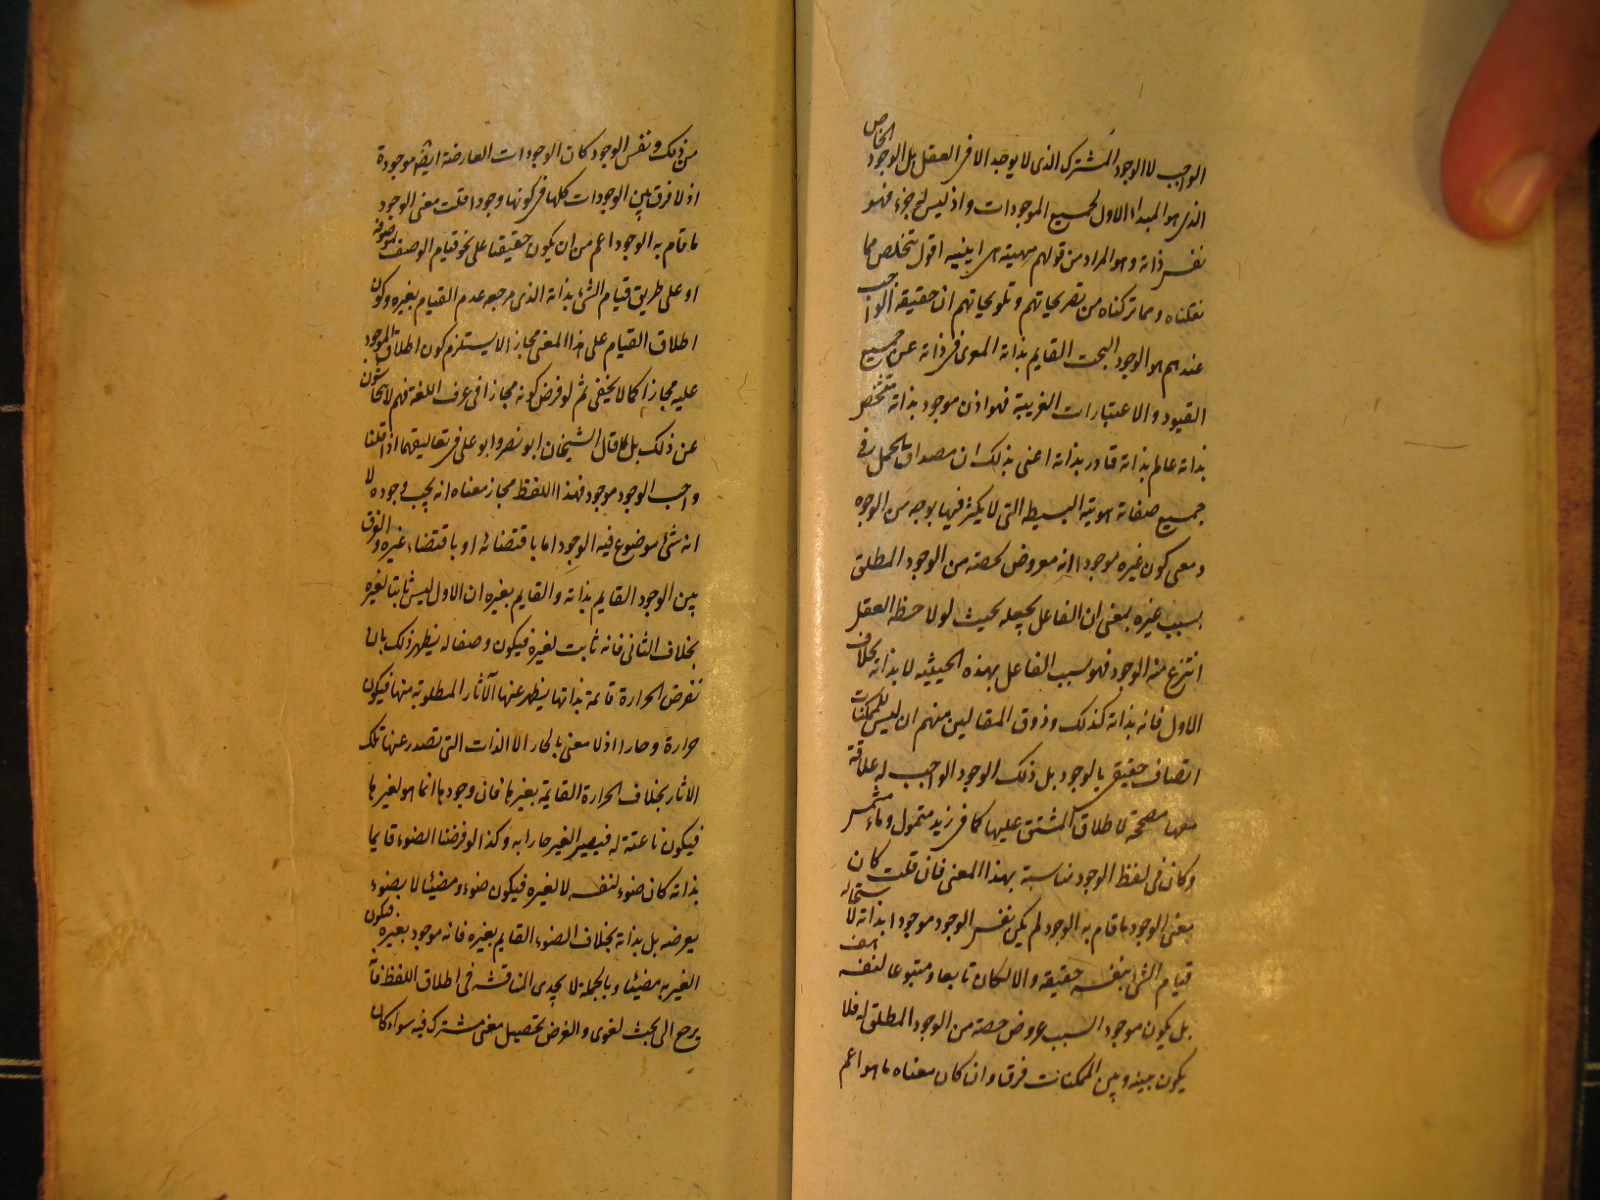 الواجب لا الوجود المشترك الذى لا يوجد الا فى العقل بل الوجود الخاص
الذى هو المبداء الاول لجميع الموجودات واذ ليس له جزء فهو
نفس ذاته وهو المراد من قولهم مهيته هى اينيته اقول يتخلص مما
نقلناه ومما تركناه من تصريحاتهم وتلويحاتهم ان حقيقة الواجب
عندهم هو الوجود البحت القايم بذاته المعرى فى ذاته عن جميع
القيود والاعتبارات الغريبة فهو اذن موجود بذاته متشخص
بذاته عالم بذاته قادر بذاته اعنى بذلك ان مصداق الحمل فى
جميع صفاته هويته البسيطه التى لا يكثر فيها بوجه من الوجوه
ومعى كون غيره موجودا انه معروض لحصته من الوجود المطلق
بسبب غيره بمعنى ان الفاعل يجعله بحيث لو لاحظه العقل
انتزع منه الوجود فهو بسبب الفاعل بهذه الحيثيه لا بذاته بخلاف
الاول فانه بذاته كذلك وذوق المقالين منهم ان ليس للممكنات
اتصاف حقيقى بالوجود بل ذلك الوجود الواجب له علاقة
معها مصححة لاطلاق المشتق عليها كما فى زيد متمول وماء مشمس
وكان فى لفظ الوجود مناسبة بهذا المعنى فان قلت كان
معنى الوجود ما قام به الوجود لم يكن نفس الوجود موجودا بذاته لاستحالة
قيام الشئ بنفسه حقيقه والا لكان تابعا ومتبوعا لنفسه
بل يكون موجود السبب عروض حصته من الوجود المطلق له فلا
يكون بينه وبين الممكنات فرق وان كان معناه ما هو اعم
من ذلك ونفس الوجود كان الوجودات العارضة ايضا موجودة
اذ لا فرق بين الوجودات كلها فى كونها وجودا قلت معنى الوجود
ما قام به الوجود اعم من ان يكون حقيقتا على نحو قيام الوصف بموصوفه
او على طريق قيام الشئ بذاته الذى مرجعه عدم القيام بغيره وكون
اطلاق القيام على هذا المعنى مجاز الا يستلزم كون اطلاق الموجود
عليه مجازا كما لا يخفى ثم لو فرض كونه مجازا فى عرف اللغة فهم لا يتحاشون
عن ذلك بل كما قال الشيخان ابو نصر وابو على فى تعاليقهما اذا قلنا
واجب الوجود موجود فهذا اللفظ مجاز معناه انه يجب وجوده لا
انه شئ موضوع فيه الوجود اما باقتضائه او باقتضاء غيره والفرق
بين الوجود القايم بذاته والقايم بغيره ان الاول ليس ثابتا لغيره
بخلاف الثانى فانه ثابت لغيره فيكون وصفا له يظهر ذلك بان
تفرض الحرارة قائمة بذاتها يظهر عنها الآثار المطلوبة منها فيكون
حرارة وحارا اذ لا معنى بالحار الا الذات التى تصدر عنها تلك
الاثار بخلاف الحرارة القايمة بغيرها فان وجودها انما هو لغيرها
فيكون ناعتة له فيصير الغير حارا به وكذا لو فرضنا الضوء قايما
بذاته كان ضوء لنفسه لا لغيره فيكون ضوء ومضيئا لا بضوء
يعرضه بل بذاته بخلاف الضوء القايم بغيره فانه موجود بغيره فيكون
الغير به مضيئا وبالجملة لا يجدى المناقشه فى اطلاق اللفظ فانه
يرجع الى بحث لغوى والغرض تحصيل معنى مشترك فيه سواء كان